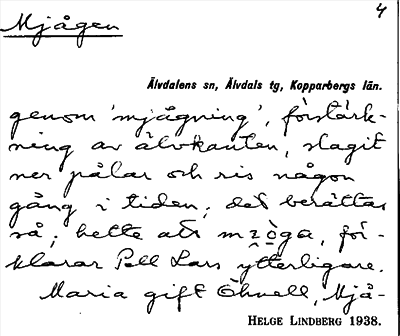 Mjågen
4
Älvdalens sn, Älvdals tg, Kopparbergs län.
genom 'mjågning', förstärk-
ning av älvkanten, slagit
ner pålar och ris någon
gång i tiden; det berättas
så; hette att mzòga, för-
klarar Pell Lars ytterligare.
Maria gift Öhnell, Mjå-
HELGE LINDBERG 1938.